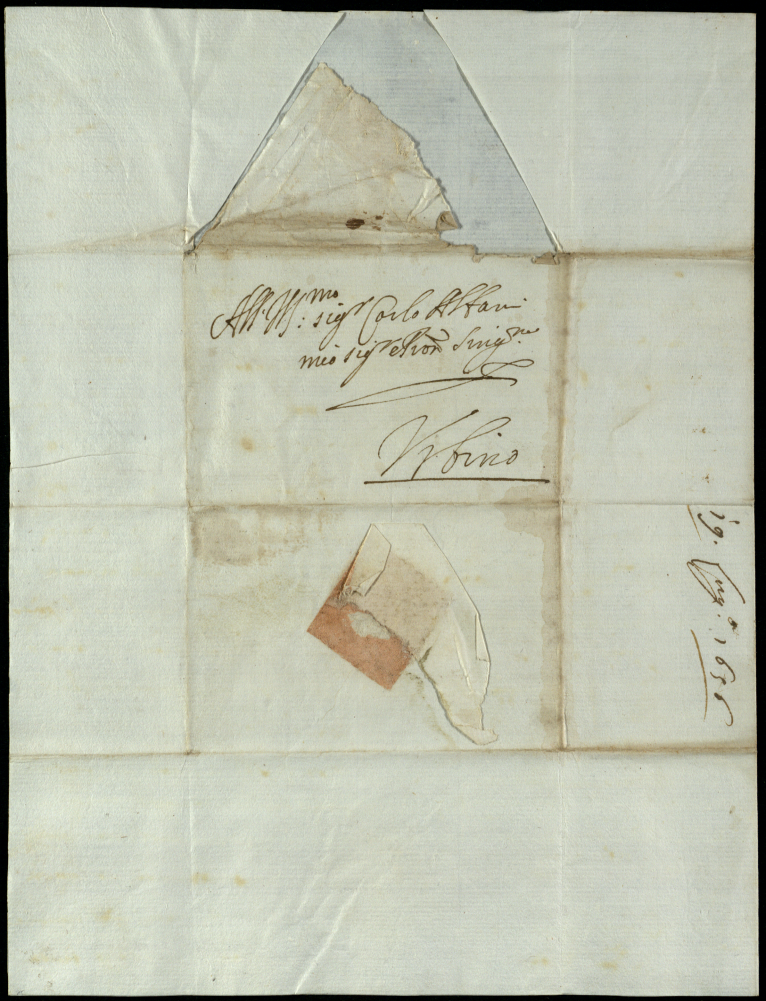 All Ill:mo sigr Carlo Albani
mio sigr e Pron Sing.mo
Urbino
19. Lug.o 1656